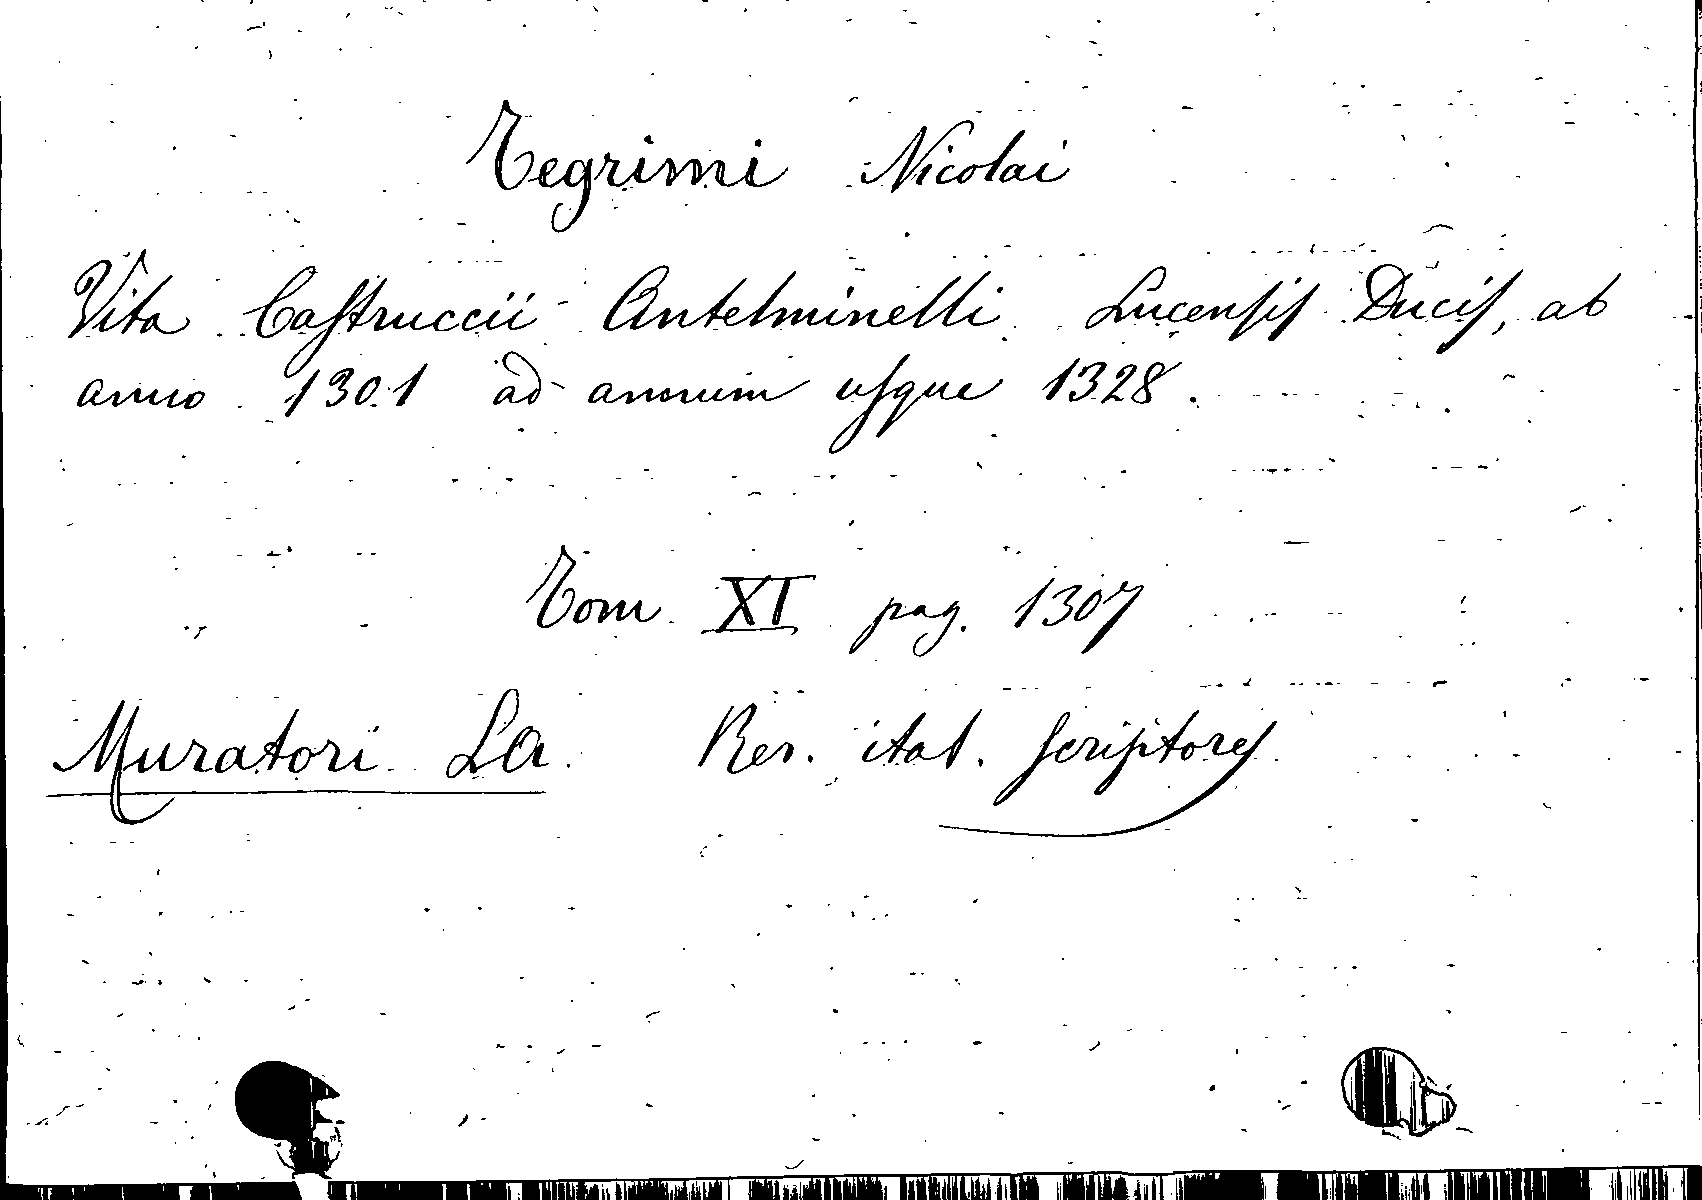 Tegrimi Nicolai
Vita Castruccii Antelminelli Lucensis Ducis, ab
anno 1301 ad annum usque 1328.
Tom XI pag. 1307
Muratori LA Rer. ital. scriptores